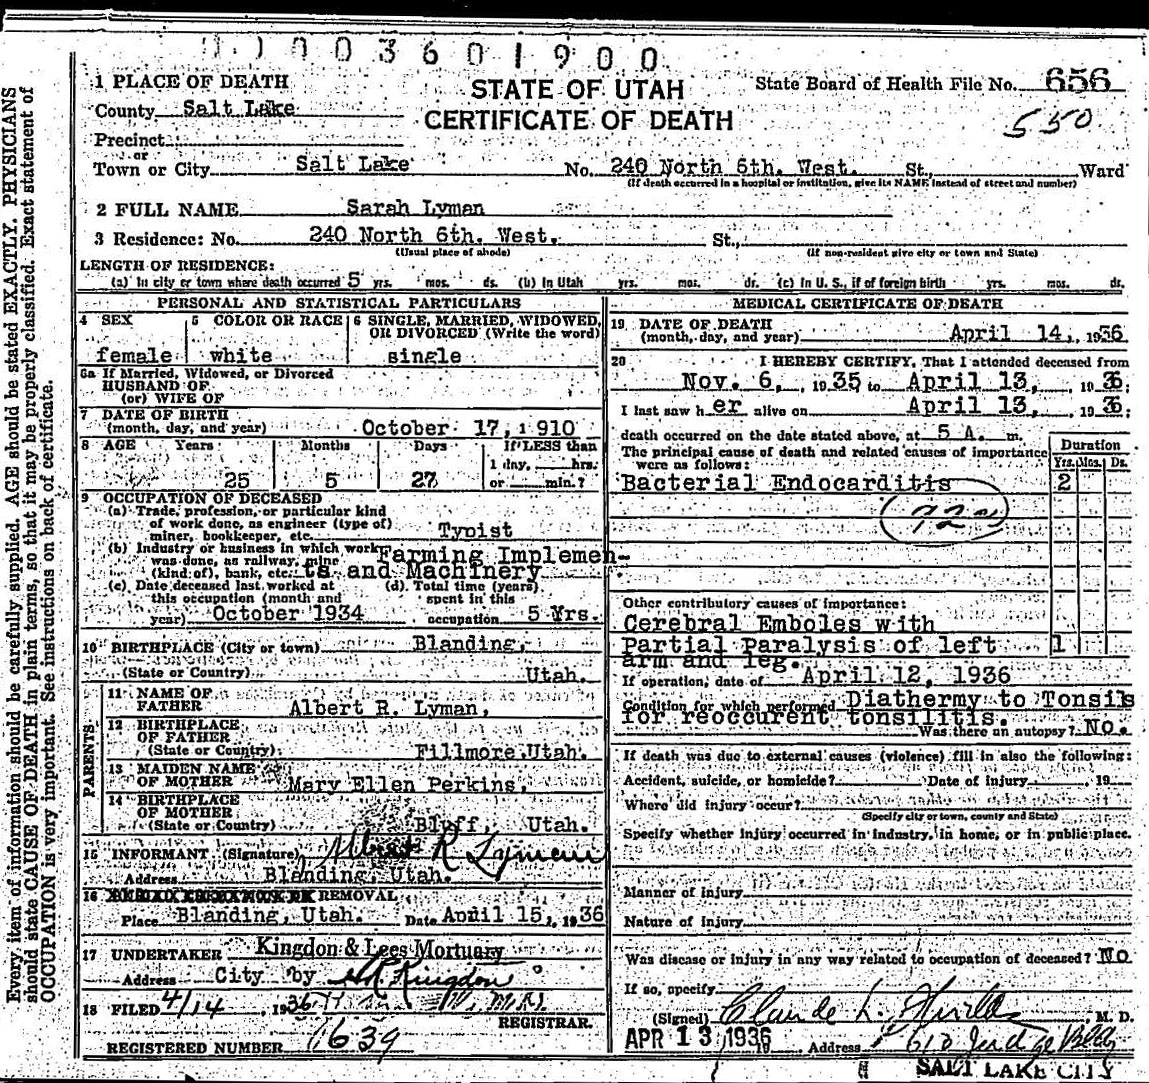 0003601900
1 PLACE OF DEATH
STATE OF UTAH
State Board of Health File No. 656
County Salt Lake
CERTIFICATE OF DEATH
550
Precinct
or
Town or City Salt Lake No. 240 North 6th. West. St., Ward
(If death occurred in a hospital or institution, give its NAME instead of street and number)
2 FULL NAME Sarah Lyman
3 Residence: No. 240 North 6th. West. St.,
(Usual place of abode) (If non-resident give city or town and State)
LENGTH OF RESIDENCE:
(a) In city or town where death occurred 5 yrs. mos. ds. (b) In Utah yrs. mos. ds. (c) In U. S., if of foreign birth yrs. mos. ds.
PERSONAL AND STATISTICAL PARTICULARS
4 SEX
female
5 COLOR OR RACE
white
6 SINGLE, MARRIED, WIDOWED,
OR DIVORCED (Write the word)
single
6a If Married, Widowed, or Divorced
HUSBAND OF
(or) WIFE OF
7 DATE OF BIRTH
(month, day, and year) October 17, 1910
8 AGE Years Months Days If LESS than
1 day, hrs.
25 5 27 or min.?
9 OCCUPATION OF DECEASED
(a) Trade, profession, or particular kind
of work done, as engineer (type of)
miner, bookkeeper, etc. Typist
(b) Industry or business in which work
was done, as railway, mine
(kind of), bank, etc. Farming Implemen-
ts and Machinery
(c) Date deceased last worked at
this occupation (month and
year) October 1934
(d). Total time (years)
spent in this
occupation 5 Yrs.
10 BIRTHPLACE (City or town) Blanding,
(State or Country) Utah.
PARENTS
11 NAME OF
FATHER Albert R. Lyman,
12 BIRTHPLACE
OF FATHER
(State or Country) Fillmore, Utah.
13 MAIDEN NAME
OF MOTHER Mary Ellen Perkins,
14 BIRTHPLACE
OF MOTHER
(State or Country) Bluff, Utah.
15 INFORMANT (Signature) Albert R Lyman
Address Blanding, Utah.
16 REMOVAL
Place Blanding, Utah. Date April 15, 1936
17 UNDERTAKER Kingdon & Lees Mortuary
Address City by Kingdon
18 FILED 4/14, 1936
REGISTRAR.
REGISTERED NUMBER 639
MEDICAL CERTIFICATE OF DEATH
19 DATE OF DEATH
(month, day, and year) April 14, 1936
20 I HEREBY CERTIFY, That I attended deceased from
Nov. 6, 1935 to April 13, 1936;
I last saw her alive on April 13, 1936;
death occurred on the date stated above, at 5 A. m.
The principal cause of death and related causes of importance
were as follows:
Duration
Yrs. Mos. Ds.
Bacterial Endocarditis 2
Other contributory causes of importance:
Cerebral Emboles with
Partial Paralysis of left 1
arm and leg.
If operation, date of April 12, 1936
Condition for which performed Diathermy to Tonsils
for reoccurent tonsilitis.
Was there an autopsy? No.
If death was due to external causes (violence) fill in also the following:
Accident, suicide, or homicide? Date of injury 19
Where did injury occur?
(Specify city or town, county and State)
Specify whether injury occurred in industry, in home, or in public place.
Manner of injury
Nature of injury
Was disease or injury in any way related to occupation of deceased? No
If so, specify
(Signed) Claude L. , M. D.
APR 13 1936 Address 610 Judge Bldg
SALT LAKE CITY
Every item of information should be carefully supplied. AGE should be stated EXACTLY. PHYSICIANS
should state CAUSE OF DEATH in plain terms, so that it may be properly classified. Exact statement of
OCCUPATION is very important. See instructions on back of certificate.